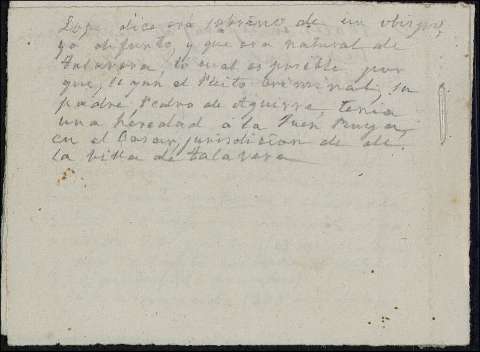 Lope dice era sobrino de un obispo,
ya difunto, y que era natural de
Talavera, lo cual es posible por
que, segun el Pleito Criminal, su
padre, Pedro de Aguirre, tenia
una heredad á la
en el Casar, jurisdiccion de
la villa de Talavera